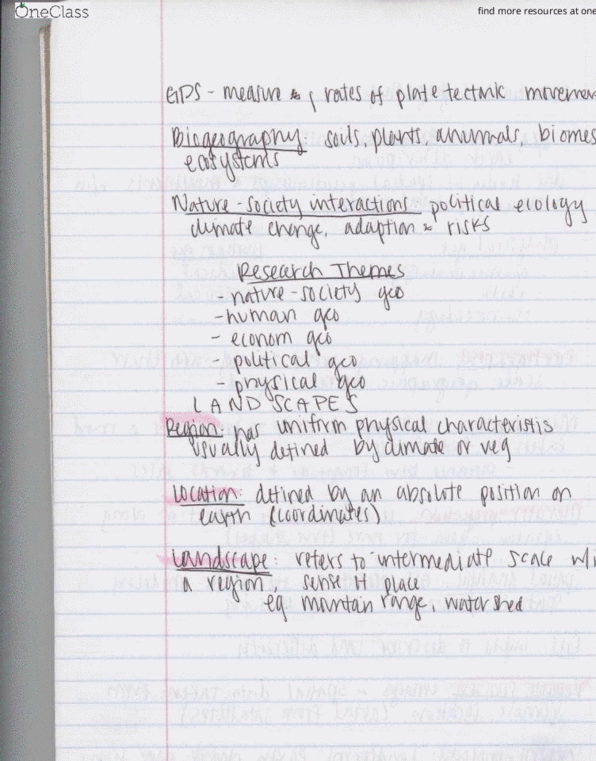 OneClass
find more resources at one
GPS - measure rates of plate tectonic movemen
Biogeography: soils, plants, animals, biomes
ecosystems
Nature-society interactions: political ecology
climate change, adaption & risks
Research Themes
- nature-society geo
- human geo
- econom geo
- political geo
- physical geo
LANDSCAPES
Region: has uniform physical characteristis
usually defined by climate or veg
Location: defined by an absolute position on
earth (coordinates)
Landscape: refers to intermediate scale w/i
a region, sense of place
eg. mantain range, watershed